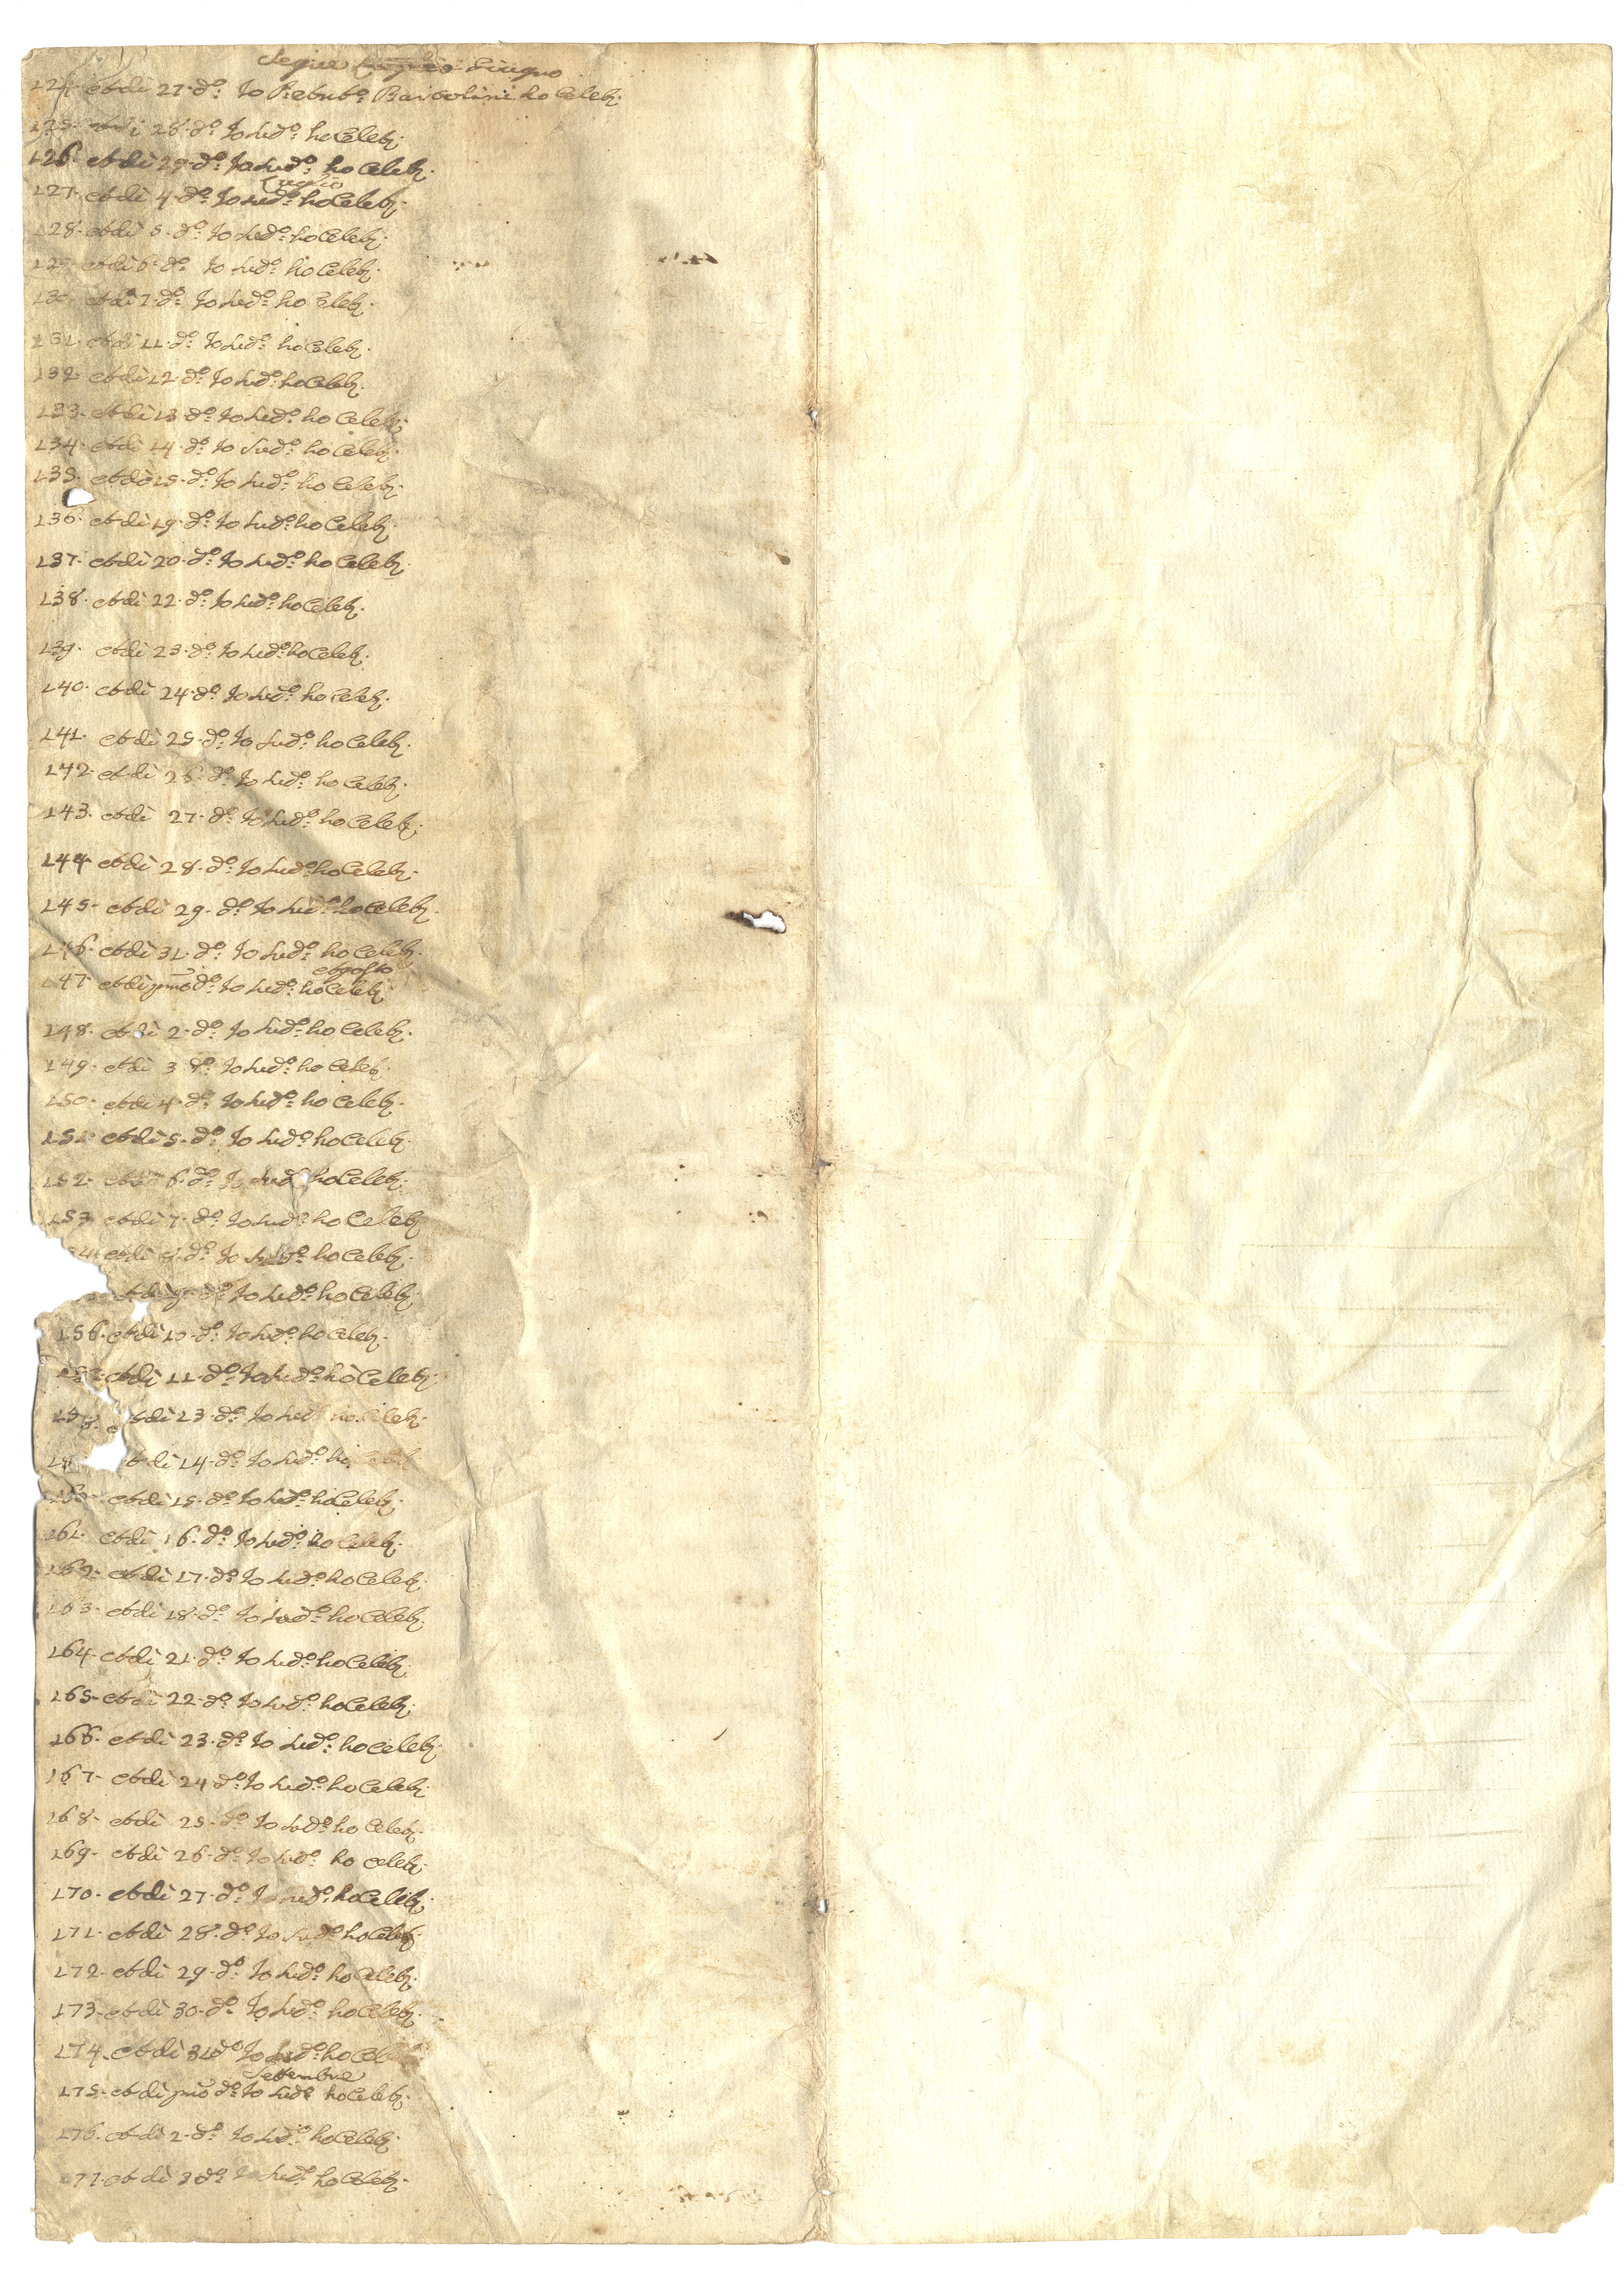 Segue Giugno
124. et di 27. d.º Io P. ho Celeb.
125. et di 28. d.º Io sud.º ho Celeb.
126. et di 29. d.º Io sud.º ho Celeb.
Luglio
127. et di 4. d.º Io sud.º ho Celeb.
128. et di 5. d.º Io sud.º ho Celeb.
129. et di 6. d.º Io sud.º ho Celeb.
130. et di 7. d.º Io sud.º ho Celeb.
131. et di 11. d.º Io sud.º ho Celeb.
132. et di 12. d.º Io sud.º ho Celeb.
133. et di 13. d.º Io sud.º ho Celeb.
134. et di 14. d.º Io sud.º ho Celeb.
135. et di 15. d.º Io sud.º ho Celeb.
136. et di 19. d.º Io sud.º ho Celeb.
137. et di 20. d.º Io sud.º ho Celeb.
138. et di 22. d.º Io sud.º ho Celeb.
139. et di 23. d.º Io sud.º ho Celeb.
140. et di 24. d.º Io sud.º ho Celeb.
141. et di 25. d.º Io sud.º ho Celeb.
142. et di 26. d.º Io sud.º ho Celeb.
143. et di 27. d.º Io sud.º ho Celeb.
144. et di 28. d.º Io sud.º ho Celeb.
145. et di 29. d.º Io sud.º ho Celeb.
146. et di 31. d.º Io sud.º ho Celeb.
Agosto
147. et di pmo d.º Io sud.º ho Celeb.
148. et di 2. d.º Io sud.º ho Celeb.
149. et di 3. d.º Io sud.º ho Celeb.
150. et di 4. d.º Io sud.º ho Celeb.
151. et di 5. d.º Io sud.º ho Celeb.
152. et di 6. d.º Io sud.º ho Celeb.
153. et di 7. d.º Io sud.º ho Celeb.
4. et di 8. d.º Io sud.º ho Celeb.
et di 9. d.º Io sud.º ho Celeb.
156. et di 10. d.º Io sud.º ho Celeb.
157. et di 11. d.º Io sud.º ho Celeb.
158. et di 13. d.º Io sud.º ho Celeb.
15 et di 14. d.º Io sud.º ho Celeb.
160. et di 15. d.º Io sud.º ho Celeb.
161. et di 16. d.º Io sud.º ho Celeb.
162. et di 17. d.º Io sud.º ho Celeb.
163. et di 18. d.º Io sud.º ho Celeb.
164. et di 21. d.º Io sud.º ho Celeb.
165. et di 22. d.º Io sud.º ho Celeb.
166. et di 23. d.º Io sud.º ho Celeb.
167. et di 24 d.º Io sud.º ho Celeb.
168. et di 25. d.º Io sud.º ho Celeb.
169. et di 26. d.º Io sud.º ho Celeb.
170. et di 27. d.º Io sud.º ho Celeb.
171. et di 28. d.º Io sud.º ho Celeb.
172. et di 29. d.º Io sud.º ho Celeb.
173. et di 30. d.º Io sud.º ho Celeb.
174. et di 31 d.º Io sud.º ho Celeb.
Settembre
175. et di pmo d.º Io sud.º ho Celeb.
176. et di 2. d.º Io sud.º ho Celeb.
177. et di 3 d.º Io sud.º ho Celeb.